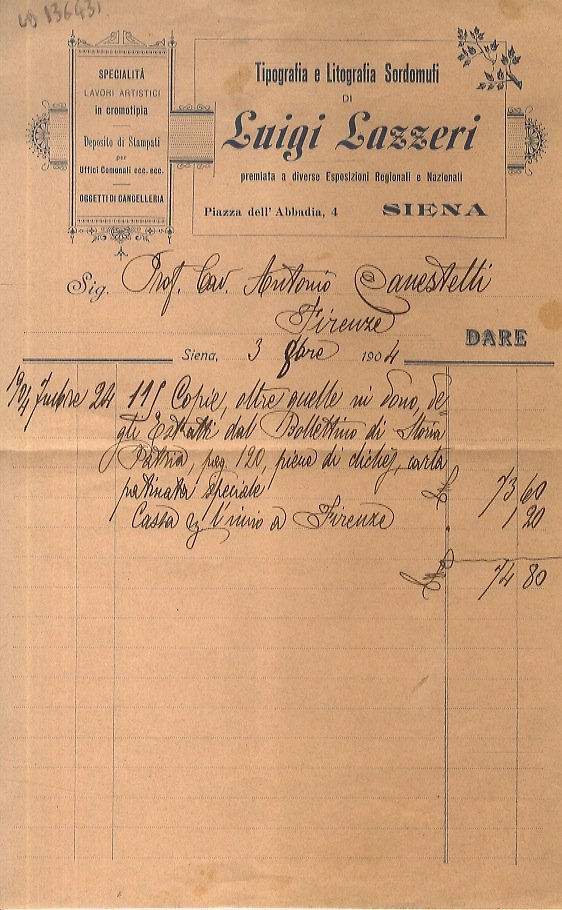 SPECIALITÀ
LAVORI ARTISTICI
in cromotipia
Deposito di Stampati
per
Uffici Comunali ecc. ecc.
OGGETTI DI CANCELLERIA
Tipografia e Litografia Sordomuti
DI
Luigi Lazzeri
premiata a diverse Esposizioni Regionali e Nazionali
Piazza dell' Abbadia, 4 SIENA
Sig. Prof. Cav. Antonio Canestelli
Firenze
DARE
Siena, 3 8bre 1904
1904 7mbre 24 115 Copie, oltre quelle in dono, de-
gli Estratti dal Bollettino di Storia
Patria, pag. 120, piene di clichés, carta
patinata speciale 73 60
Cassa e l'invio a Firenze 1 20
74 80